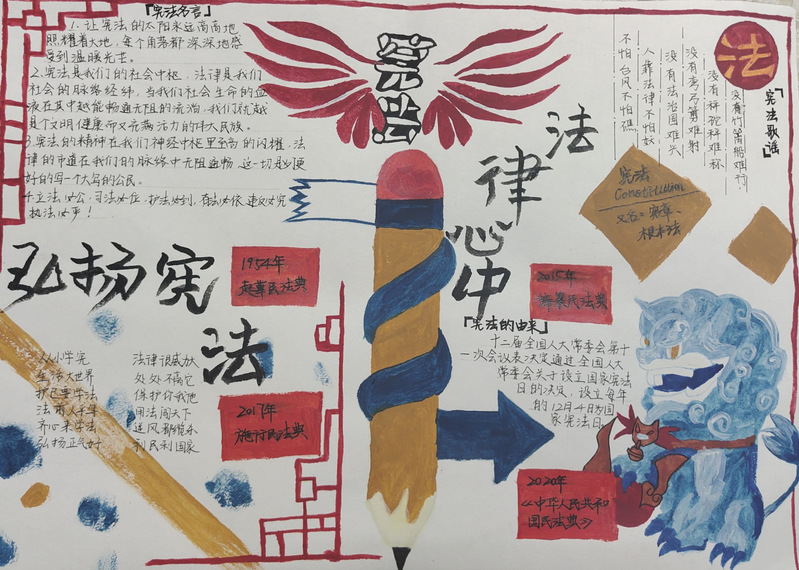 『宪法名言』
1.让宪法的太阳永远高高地
照耀着大地，每个角落都深深地感
受到温暖光芒。
2.宪法是我们的社会中枢，法律是我们
社会的脉络经纬，当我们社会生命的血
液在其中越能畅通无阻的流淌，我们就越
具个文明健康而又充满活力的伟大民族。
3.宪法的精神在我们神经中枢里至高的闪耀，法
律的市道在我们的脉络中无阻通畅，这一切是必便
好的写一个大写的公民。
4.立法必公，司法必
执法必事！
宪法
法律心中
法
『宪法歌谣』
没有竹篙船难行
没有秤砣秤难称
没有弯弓箭难射
没有法治国难兴
人靠法律不怕奴
不怕台风不怕碼
宪法
Constitution
又名：宪章、
根本法
弘扬宪法
1954年
起草民法典
2015年
编纂民法典
2017年
施行民法典
2020年
《中华人民共和
国民法典》
『宪法的由来』
十二届全国人大常委会第十
一次会议表决定通过全国人大
常委会关于设立国家宪法
日的决定，设立每年
的12月4日为国
家宪法日
从小学宪
生活大世界
护己要学法
法育人千年
齐心来学法
弘扬正气好
法律很威力
处处不离它
保护你我他
用法闯天下
利民利国家